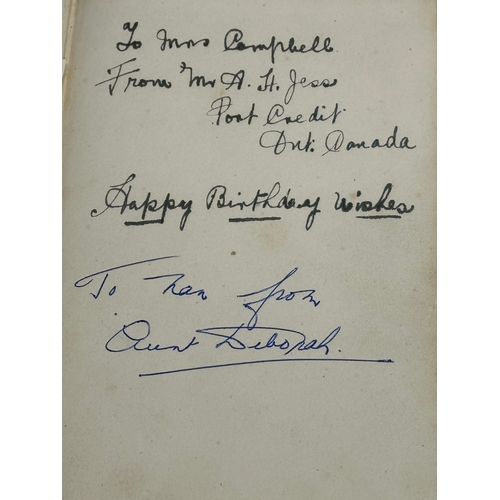 To Mrs Campbell
From Mr A. H. Jess
Port Credit
Ont. Canada
Happy Birthday Wishes
To Nan from
Aunt Deborah.